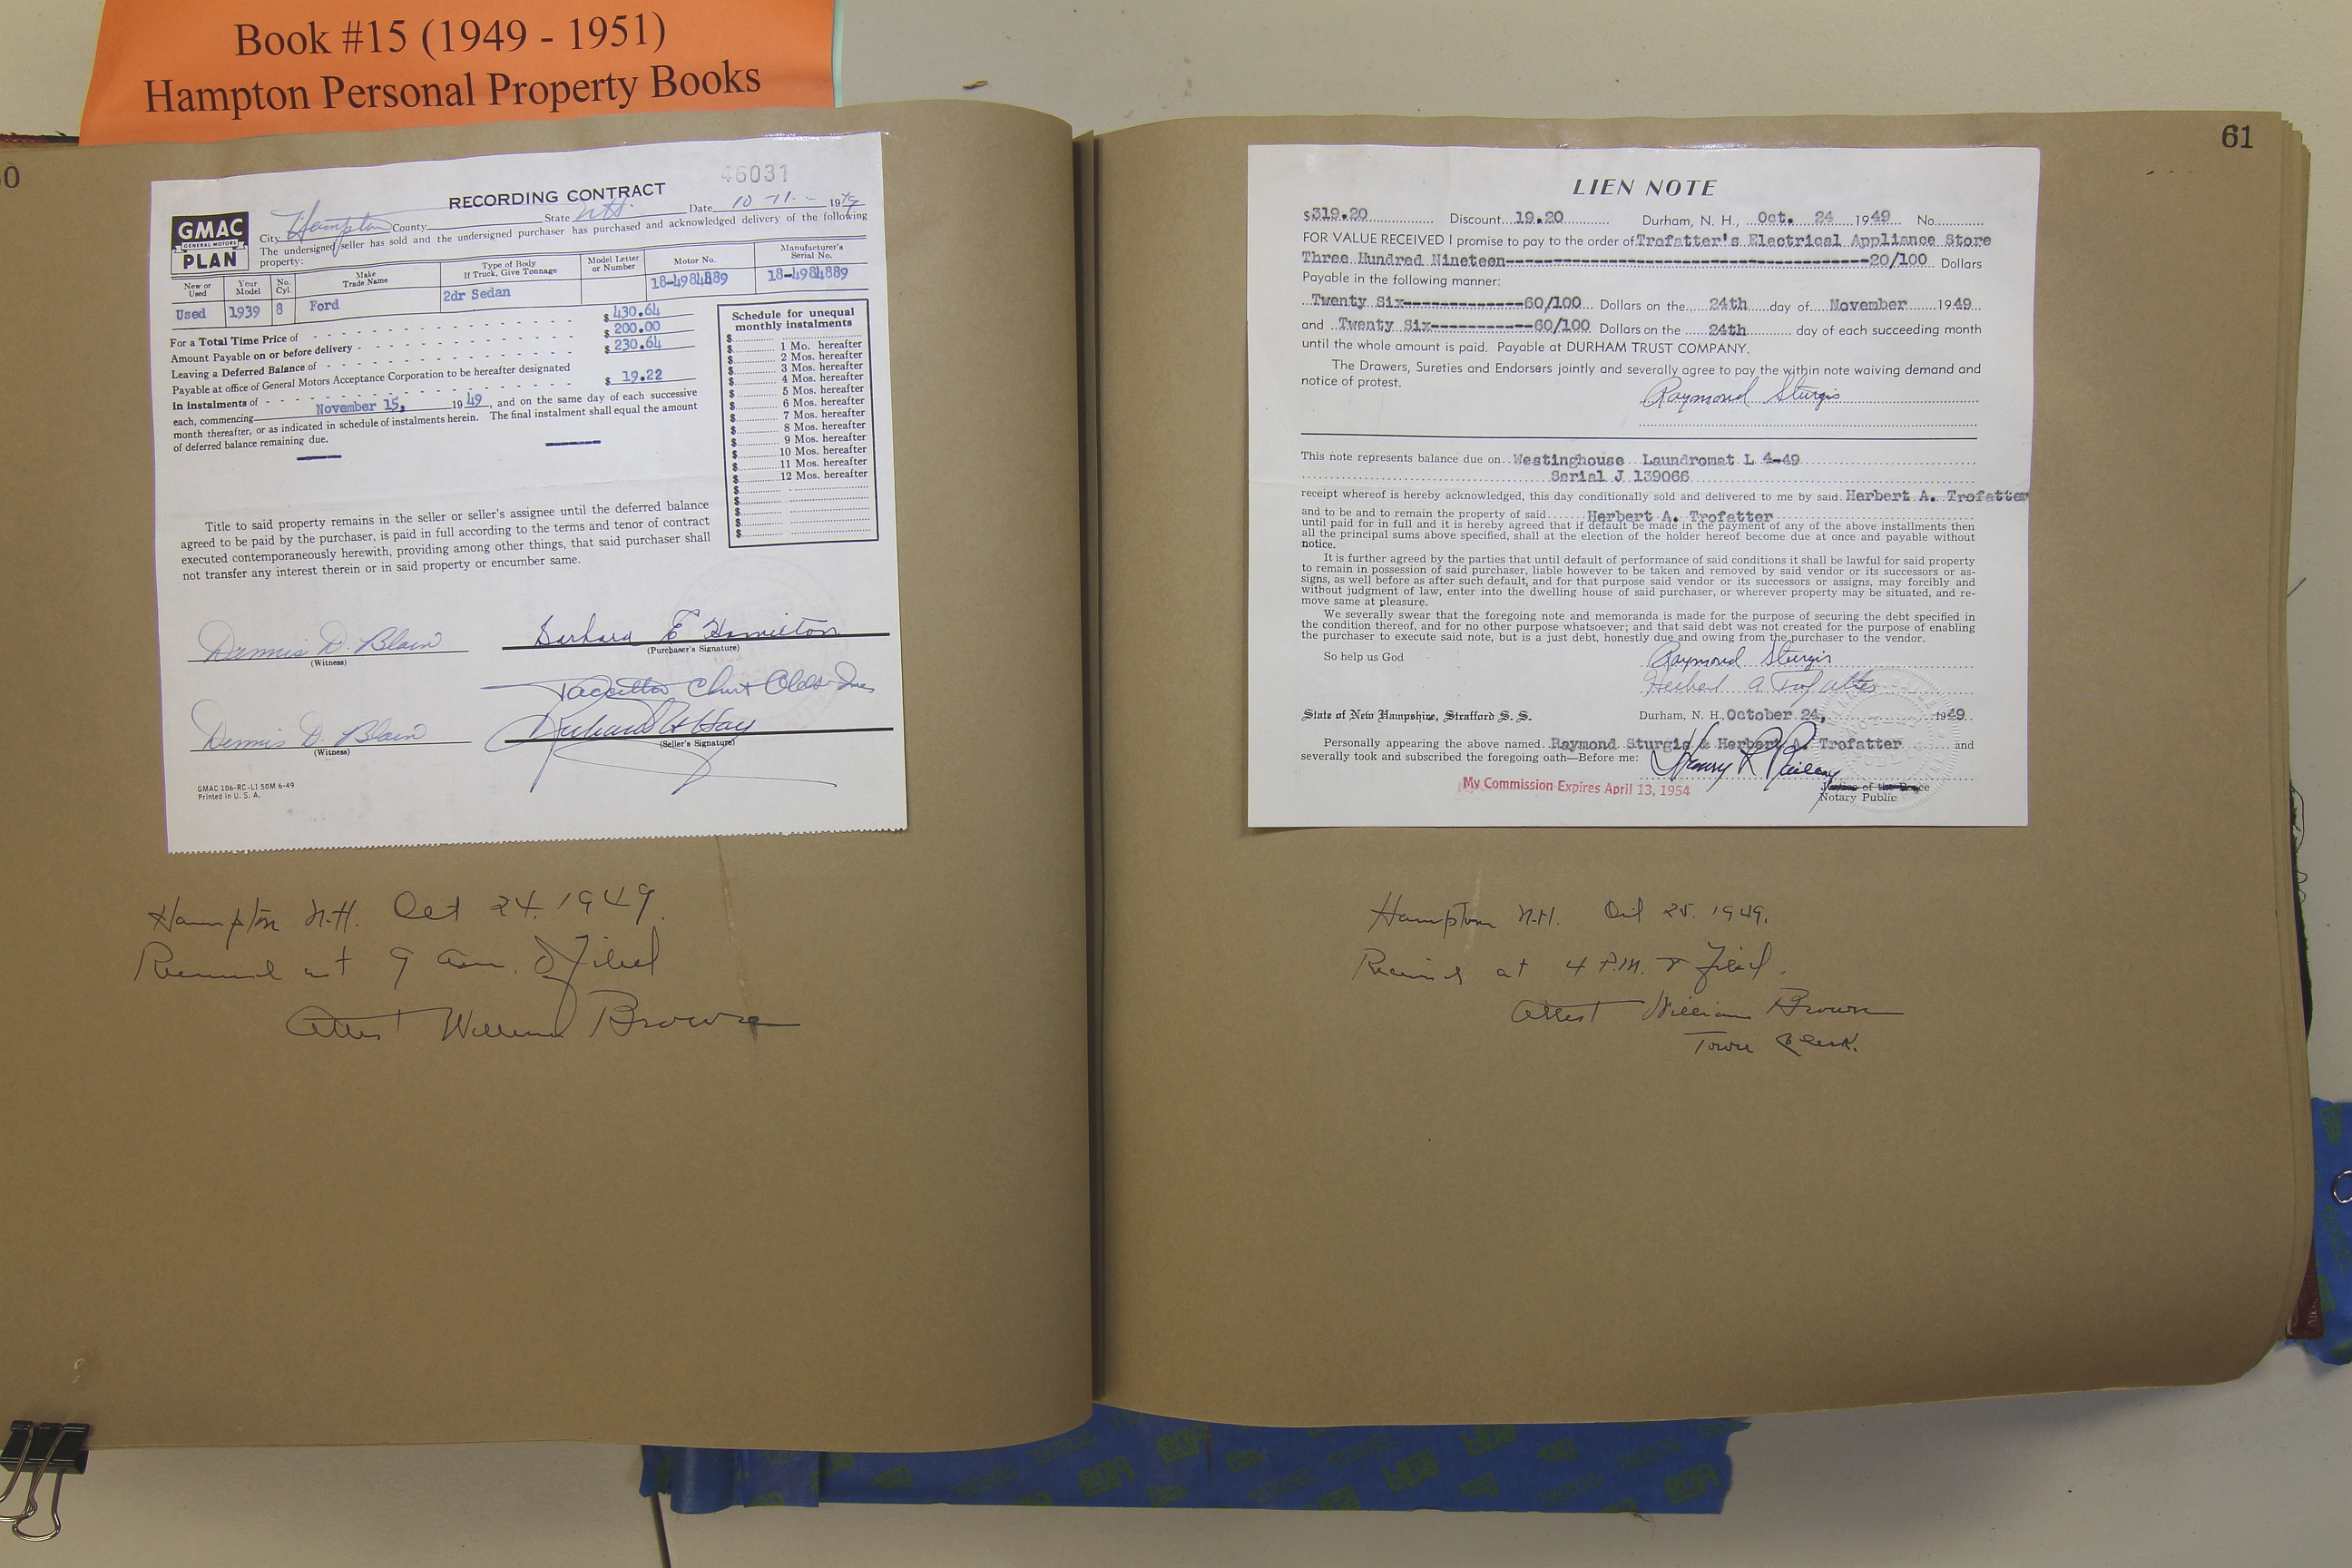 Book #15 (1949 - 1951)
Hampton Personal Property Books
0
46031
RECORDING CONTRACT
GMAC
GENERAL MOTORS
PLAN
City Hampton County State N.H. Date 10-11- 1949
The undersigned seller has sold and the undersigned purchaser has purchased and acknowledged delivery of the following
property:
New or Used Year Model No. Cyl. Make Trade Name Type of Body If Truck, Give Tonnage Model Letter or Number Motor No. Manufacturer's Serial No.
Used 1939 8 Ford 2dr Sedan 18-4984889 18-4984889
For a Total Time Price of $ 430.64
Amount Payable on or before delivery $ 200.00
Leaving a Deferred Balance of $ 230.64
Payable at office of General Motors Acceptance Corporation to be hereafter designated
in instalments of $ 19.22
each, commencing November 15, 1949, and on the same day of each successive
month thereafter, or as indicated in schedule of instalments herein. The final instalment shall equal the amount
of deferred balance remaining due.
Schedule for unequal
monthly instalments
$
$ 1 Mo. hereafter
$ 2 Mos. hereafter
$ 3 Mos. hereafter
$ 4 Mos. hereafter
$ 5 Mos. hereafter
$ 6 Mos. hereafter
$ 7 Mos. hereafter
$ 8 Mos. hereafter
$ 9 Mos. hereafter
$ 10 Mos. hereafter
$ 11 Mos. hereafter
$ 12 Mos. hereafter
$
$
$
$
$
Title to said property remains in the seller or seller's assignee until the deferred balance
agreed to be paid by the purchaser, is paid in full according to the terms and tenor of contract
executed contemporaneously herewith, providing among other things, that said purchaser shall
not transfer any interest therein or in said property or encumber same.
Dennis D. Blain Barbara E Hamilton
(Witness) (Purchaser's Signature)
Chev Olds Inc
Dennis D. Blain Richard H Hay
(Witness) (Seller's Signature)
GMAC 106-RC-L1 50M 6-49
Printed in U. S. A.
Hampton N.H. Oct 24. 1949.
Received at 9 a.m. & Filed
Attest William Brown
61
LIEN NOTE
$319.20 Discount 19.20 Durham, N. H., Oct. 24 1949 No.
FOR VALUE RECEIVED I promise to pay to the order of Trofatter's Electrical Appliance Store
Three Hundred Nineteen--------------------20/100 Dollars
Payable in the following manner:
Twenty Six-------------60/100 Dollars on the 24th day of November 1949
and Twenty Six-----------60/100 Dollars on the 24th day of each succeeding month
until the whole amount is paid. Payable at DURHAM TRUST COMPANY.
The Drawers, Sureties and Endorsers jointly and severally agree to pay the within note waiving demand and
notice of protest.
Raymond Sturgis
This note represents balance due on Westinghouse Laundromat L 4-49
Serial J 139066
receipt whereof is hereby acknowledged, this day conditionally sold and delivered to me by said Herbert A. Trofatter
and to be and to remain the property of said Herbert A. Trofatter
until paid for in full and it is hereby agreed that if default be made in the payment of any of the above installments then
all the principal sums above specified, shall at the election of the holder hereof become due at once and payable without
notice.
It is further agreed by the parties that until default of performance of said conditions it shall be lawful for said property
to remain in possession of said purchaser, liable however to be taken and removed by said vendor or its successors or as-
signs, as well before as after such default, and for that purpose said vendor or its successors or assigns, may forcibly and
without judgment of law, enter into the dwelling house of said purchaser, or wherever property may be situated, and re-
move same at pleasure.
We severally swear that the foregoing note and memoranda is made for the purpose of securing the debt specified in
the condition thereof, and for no other purpose whatsoever; and that said debt was not created for the purpose of enabling
the purchaser to execute said note, but is a just debt, honestly due and owing from the purchaser to the vendor.
So help us God Raymond Sturgis
Herbert A. Trofatter
State of New Hampshire, Strafford S. S. Durham, N. H., October 24, 1949
Personally appearing the above named Raymond Sturgis & Herbert A. Trofatter and
severally took and subscribed the foregoing oath—Before me:
My Commission Expires April 13, 1954
Justice of the Peace
Notary Public
Hampton N.H. Oct 25. 1949.
Received at 4 P.M. & Filed.
Attest William Brown
Town Clerk.